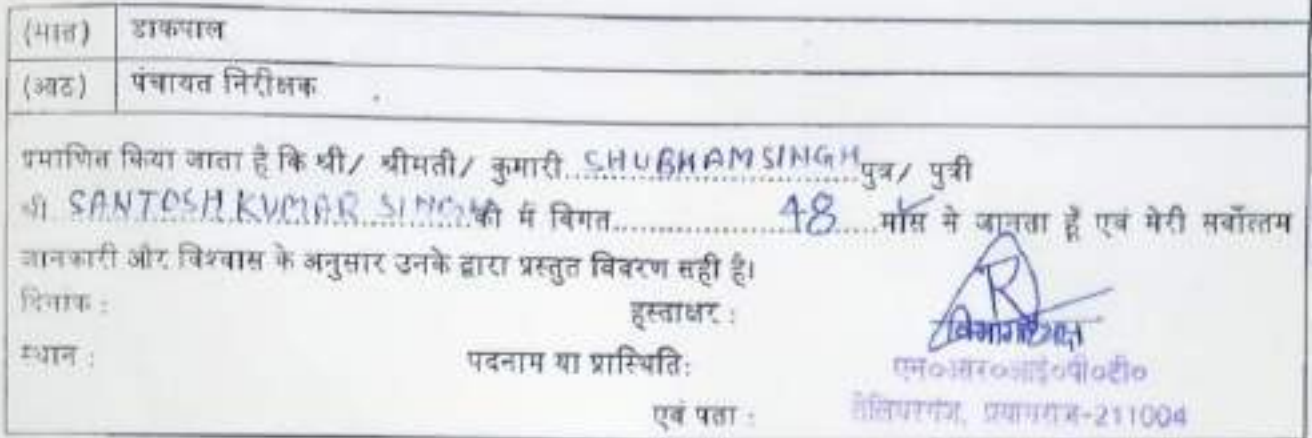 (सात) डाकपाल
(आठ) पंचायत निरीक्षक
प्रमाणित किया जाता है कि श्री/ श्रीमती/ कुमारी SHUBHAM SINGH पुत्र/ पुत्री
श्री SANTOSH KUMAR SINGH को मैं विगत 48 मॉस से जानता हूँ एवं मेरी सर्वोत्तम
जानकारी और विश्वास के अनुसार उनके द्वारा प्रस्तुत विवरण सही है।
दिनांक : हस्ताक्षर :
विभागाध्यक्ष
स्थान : पदनाम या प्रास्थिति: एन०आर०आई०पी०टी०
एवं पता : तेलियरगंज, प्रयागराज-211004